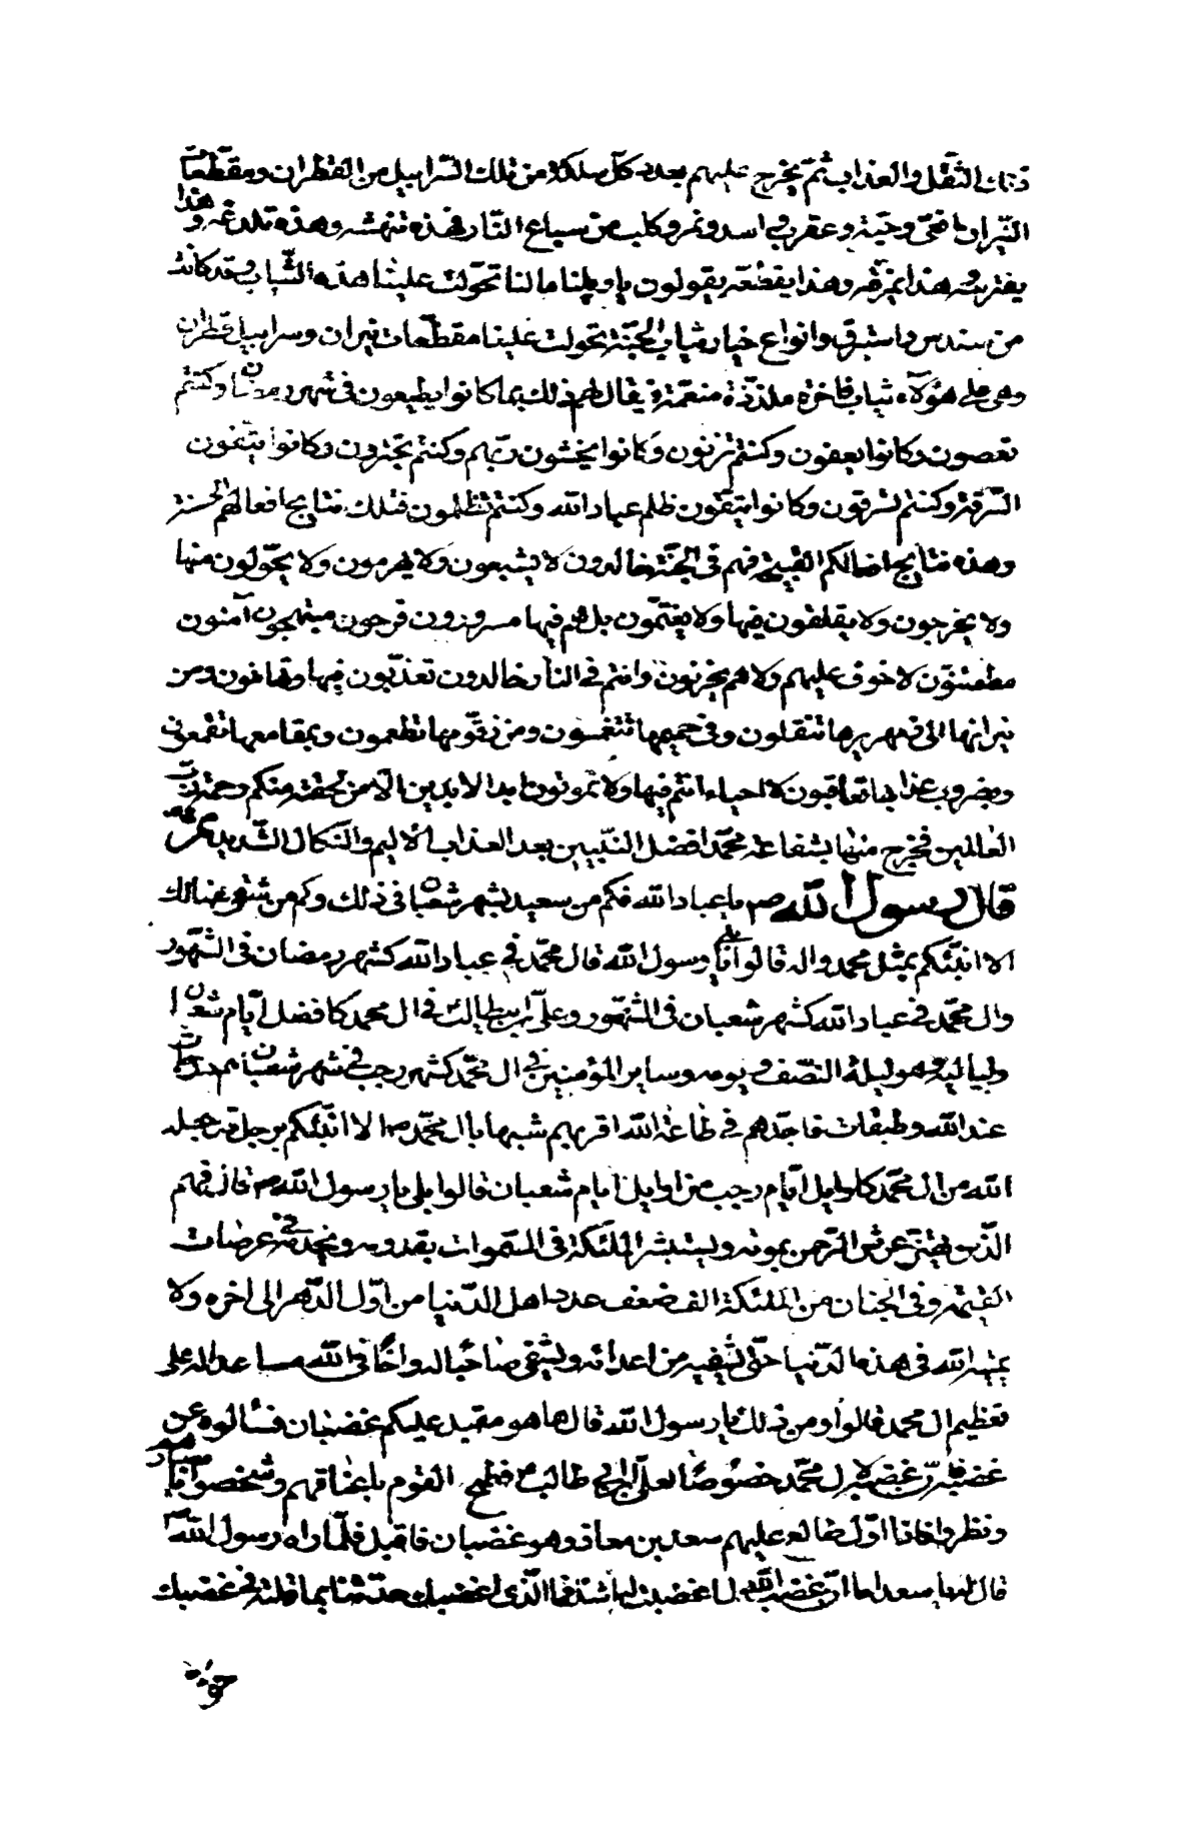 ذلك الثقل والعذاب ثم يخرج عليهم بعدد كل سلكة من تلك السرابيل من القطران ومقطعات
النيران افعى وحية وعقرب واسد ونمر وكلب من سباع النار فهذه تنهشه وهذه تلدغه وهذا
يفترسه وهذا يمزقه وهذا يقطعه يقولون يا ويلنا مالنا تحولت علينا هذه الثياب وقد كانت
من سندس واستبرق وانواع خيار ثياب الجنة تحولت علينا مقطعات نيران وسرابيل قطران
وهى على هؤلاء ثياب فاخرة ملذذة منعمة فيقال لهم ذلك بما كانوا يطيعون في شهر رمضان وكنتم
تعصون وكانوا يعفون وكنتم تزنون وكانوا يخشون ربهم وكنتم تجترون وكانوا يتقون
السرقة وكنتم تسرقون وكانوا يتقون ظلم عباد الله وكنتم تظلمون فتلك نتايج افعالهم الحسنة
وهذه نتايج افعالكم القبيحة فهم في الجنة خالدون لا يشيبون ولا يهرمون ولا يحولون منها
ولا يخرجون ولا يقلقون فيها ولا يغتمون بل هم فيها مسرورون فرحون مبتهجون آمنون
مطمئنون لا خوف عليهم ولا هم يحزنون وانتم في النار خالدون تعذبون فيها وتهانون ومن
نيرانها الى زمهريرها تنقلون وفي حميمها تنغمسون ومن زقومها تطعمون وبمقامعها تقمعون
وبضروب عذابها تعاقبون لا احياء انتم فيها ولا تموتون ابد الابدين الا من لحقته منكم رحمة رب
العالمين فخرج منها بشفاعة محمد افضل النبيين بعد العذاب الاليم والنكال الشديد ثم
قال رسول الله ص يا عباد الله فكم من سعيد بشهر شعبان في ذلك وكم من شقى هنالك
الا انبئكم بمثل محمد واله قالوا بلى يا رسول الله قال محمد في عباد الله كشهر رمضان في الشهور
وال محمد في عباد الله كشهر شعبان في الشهور وعلى بن ابيطالب في ال محمد كافضل ايام شعبان
ولياليه وهو ليلة النصف ويومه وساير المؤمنين في ال محمد كشهر رجب في شهر شعبان هم درجات
عند الله وطبقات فاجدهم في طاعة الله اقربهم شبها بال محمد الا انبئكم برجل قد جعله
الله من ال محمد كاوايل ايام رجب من اوايل ايام شعبان قالوا بلى يا رسول الله ص قال فهم
الذى يهتز عرش الرحمن بموته ويستبشر الملئكة في السموات بقدومه ويخدمه في عرصات
القيمة وفي الجنان من الملئكة الف ضعف عدد اهل الدنيا من اول الدهر الى اخره ولا
يميته الله في هذه الدنيا حتى يشفيه من اعدائه ويشفى صاحبا له واخا في الله مساعدا له على
تعظيم ال محمد قالوا ومن ذلك يا رسول الله قال ها هو مقبل عليكم غضبان فسألوه عن
غضبه فان غضبه لال محمد خصوصا لعلى بن ابى طالب فطمح القوم باعناقهم وشخصوا بابصارهم
ونظروا فاذا اول طالع عليهم سعد بن معاذ وهو غضبان فاقبل فلما راه رسول الله
قال له يا سعد اما ان غضب الله لما غضبت له اشد فما الذى اغضبك حدثنا بما قلته في غضبك